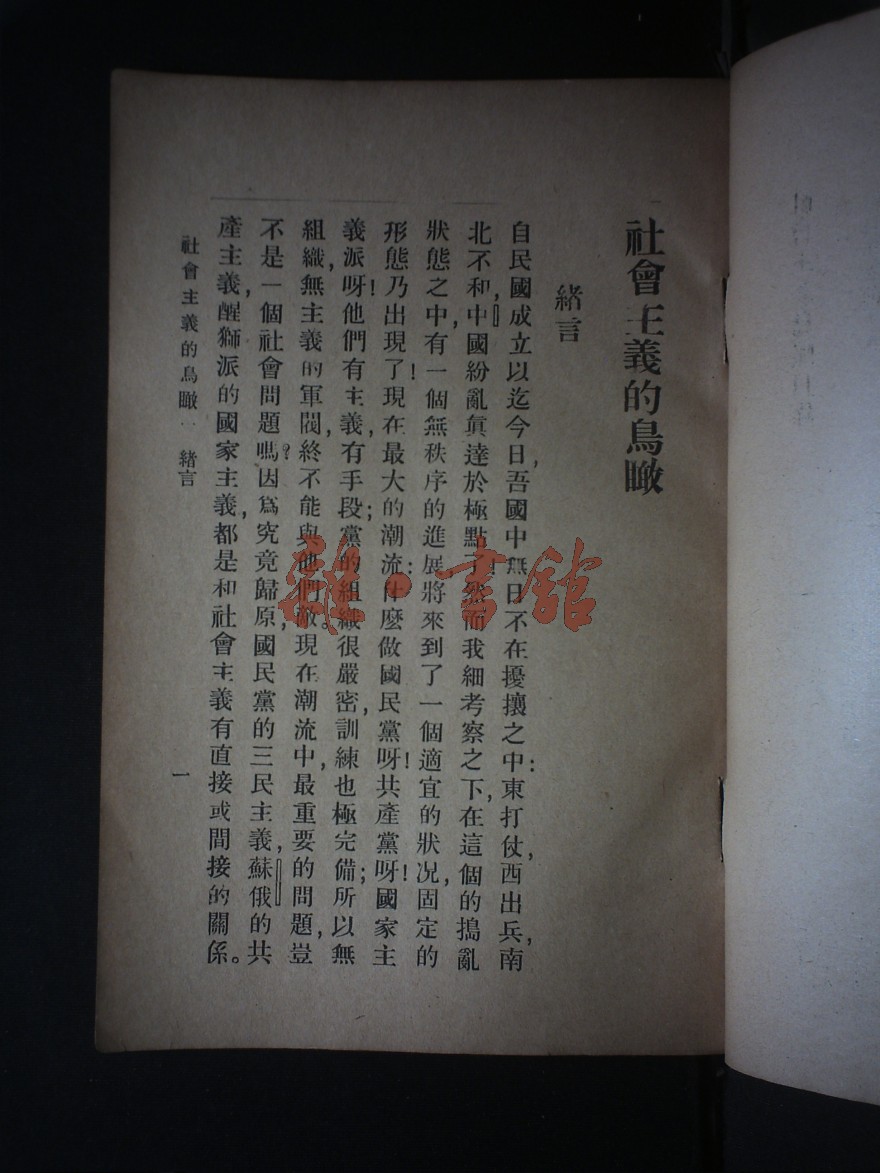 社會主義的鳥瞰
緒言
自民國成立以迄今日,吾國中無日不在擾攘之中:東打仗,西出兵,南
北不和,中國紛亂眞達於極點了!然而我細考察之下,在這個的搗亂
狀態之中,有一個無秩序的進展,將來到了一個適宜的狀况,固定的
形態乃出現了!現在最大的潮流:什麼做國民黨呀!共產黨呀!國家主
義派呀!他們有主義,有手段;黨的組織很嚴密,訓練也極完備;所以無
組織,無主義的軍閥,終不能與他們敵。現在潮流中,最重要的問題,豈
不是一個社會問題嗎?因爲究竟歸原,國民黨的三民主義,蘇俄的共
產主義,醒獅派的國家主義,都是和社會主義有直接或間接的關係。
社會主義的鳥瞰 緒言
一
雜·書館